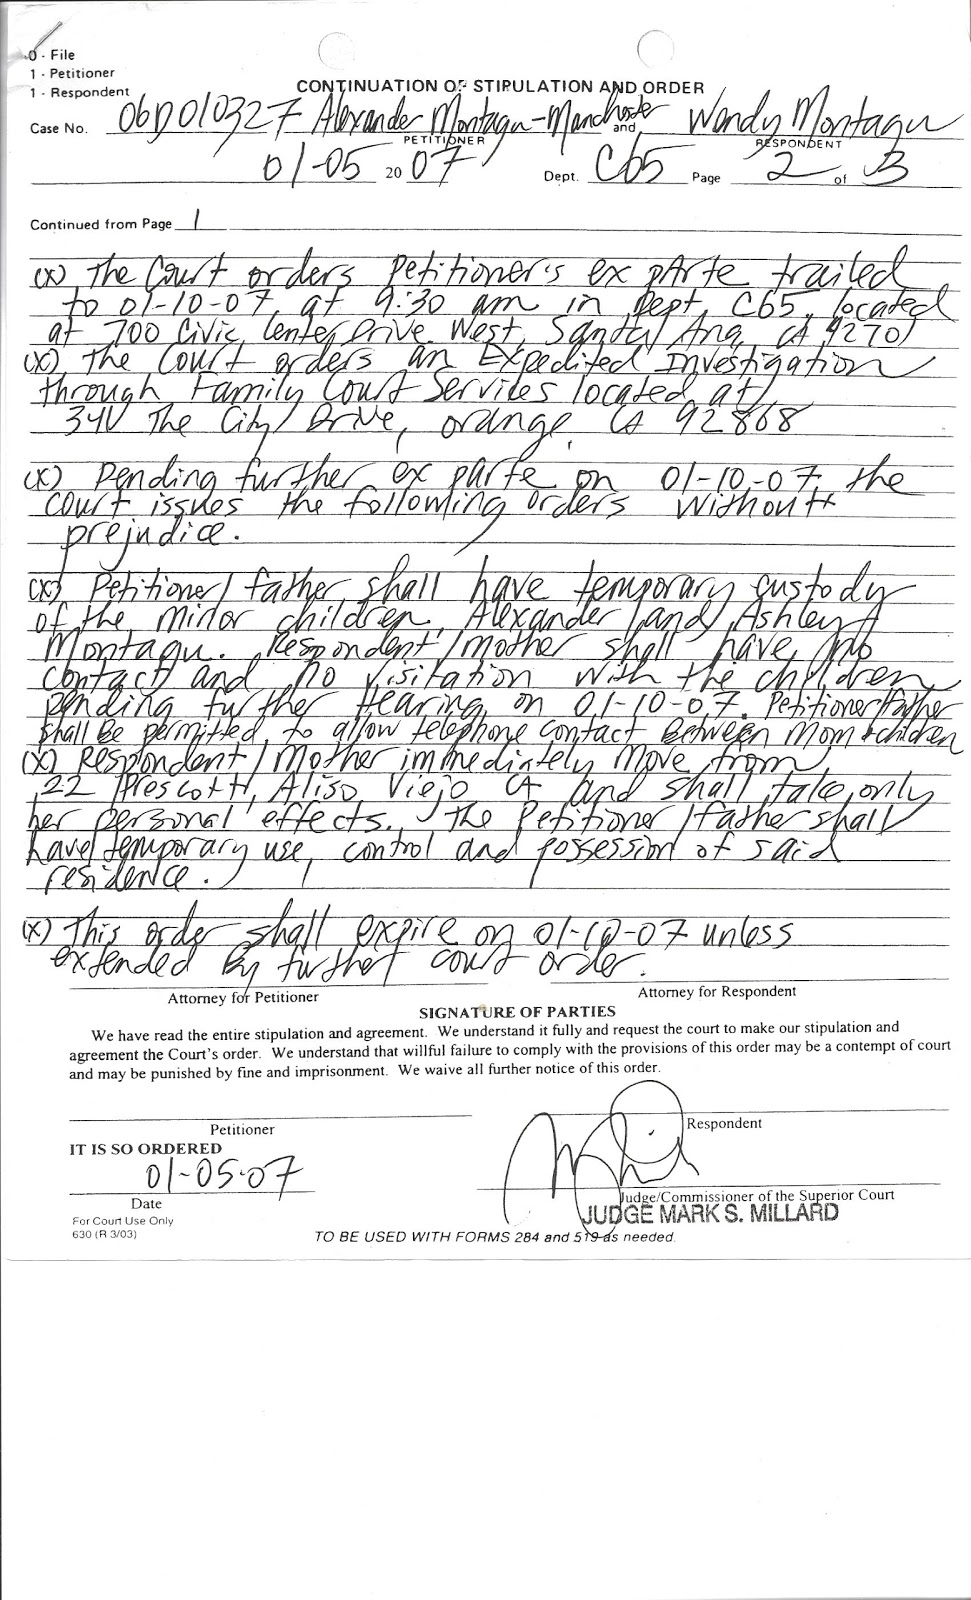 0 - File
1 - Petitioner
1 - Respondent
CONTINUATION OF STIPULATION AND ORDER
Case No. 06D010327 Alexander Montagu-Manchester and Wendy Montagu
PETITIONER RESPONDENT
01-05 20 07 Dept. C65 Page 2 of 3
Continued from Page 1
(X) The Court orders Petitioner's ex parte trailed
to 01-10-07, at 9:30 am in Dept. C65, located
at 700 Civic Center Drive West, Santa Ana, CA 92701
(X) The Court orders an Expedited Investigation
through Family Court Services located at
341 The City Drive, orange, CA 92868
(X) Pending further ex parte on 01-10-07, the
court issues the following orders without
prejudice.
(X) Petitioner/father shall have temporary custody
of the minor children, Alexander and Ashley
Montagu. Respondent/mother shall have no
contact and no visitation with the children
pending further Hearing on 01-10-07. Petitioner/Father
shall Be permitted to allow telephone contact Between Mom + children
(X) Respondent/Mother immediately move from
22 Prescott, Aliso Viejo CA and shall take only
her personal effects. The Petitioner/father shall
have temporary use, control and possession of said
residence.
(X) This order shall expire on 01-10-07 unless
extended By further court order.
Attorney for Petitioner Attorney for Respondent
SIGNATURE OF PARTIES
We have read the entire stipulation and agreement. We understand it fully and request the court to make our stipulation and
agreement the Court's order. We understand that willful failure to comply with the provisions of this order may be a contempt of court
and may be punished by fine and imprisonment. We waive all further notice of this order.
Petitioner Respondent
IT IS SO ORDERED
01-05-07
Date Judge/Commissioner of the Superior Court
JUDGE MARK S. MILLARD
For Court Use Only
630 (R 3/03)
TO BE USED WITH FORMS 284 and 519 as needed.